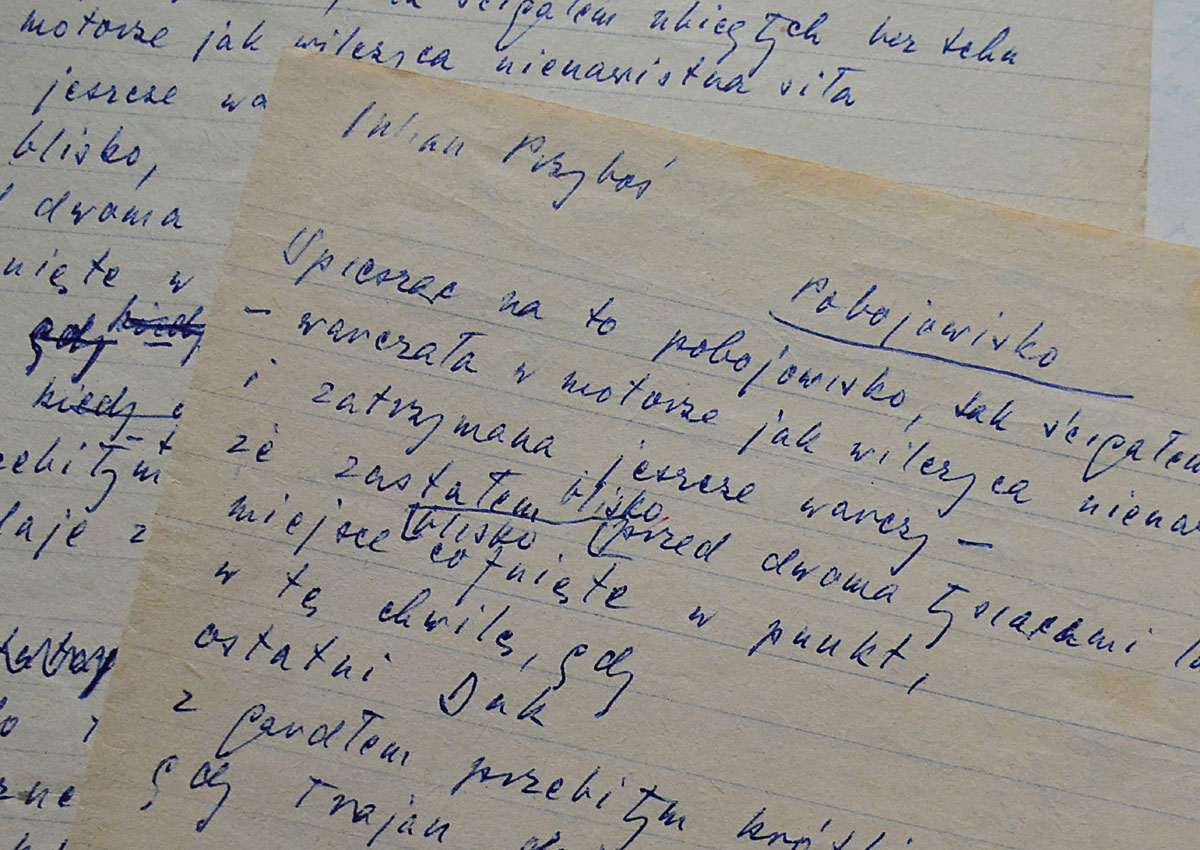 ścigałem ubiegłych bez tchu
motorze jak wilcząca nienawistna siła
jeszcze wa
blisko,
dwoma
nięte w
gdy kiedy
kiedy
zebitym
laje z
Julian Przyboś
Pobojowisko
Spiesząc na to pobojowisko, tak ścigałem
– warczała w motorze jak wilcząca niena
i zatrzymana jeszcze warczy –
że zastałem blisko
blisko przed dwoma tysiącami la
miejsce cofnięte w punkt,
w tę chwilę, gdy
ostatni Dak
z gardłem przebitym krótki
gdy Trajan